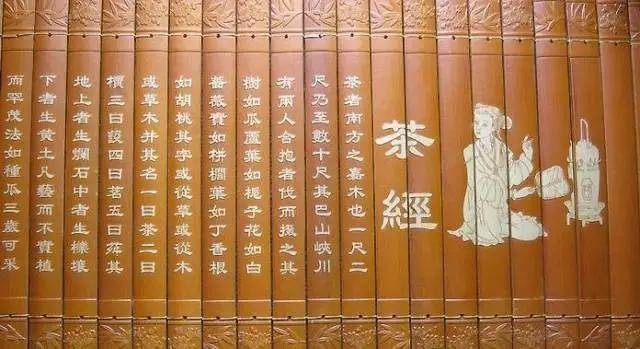 茶經
茶者南方之嘉木也一尺二
尺乃至數十尺其巴山峽川
有兩人合抱者伐而掇之其
樹如瓜蘆葉如梔子花如白
薔薇實如栟櫚葉如丁香根
如胡桃其字或從草或從木
或草木并其名一曰茶二曰
檟三曰蔎四曰茗五曰荈其
地上者生爛石中者生櫟壤
下者生黄土凡藝而不實植
而罕茂法如種瓜三歲可采